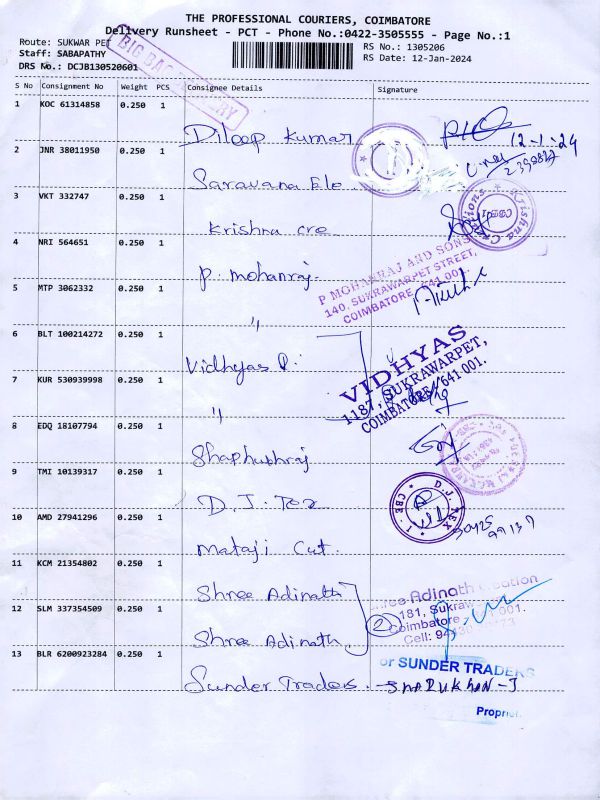 THE PROFESSIONAL COURIERS, COIMBATORE
Delivery Runsheet - PCT - Phone No.:0422-3505555 - Page No.:1
Route: SUKWAR PET
RS No.: 1305206
Staff: SABAPATHY
RS Date: 12-Jan-2024
DRS No.: DCJB130520601
BIG BAG DELIVERY
S No Consignment No Weight PCS Consignee Details Signature
1 KOC 61314858 0.250 1 Dileep Kumar
12-1-24
2 JNR 38011950 0.250 1 Saravana Ele
3 VKT 332747 0.250 1 Krishna cre
Krishna Creations
CBE-1
4 NRI 564651 0.250 1 P. mohanraj.
P MOHANRAJ AND SONS
140, SUKRAWARPET STREET,
COIMBATORE, 641 001
5 MTP 3062332 0.250 1 〃
6 BLT 100214272 0.250 1 Vidhyas P.
VIDHYAS
1187, SUKRAWARPET,
COIMBATORE-641 001.
7 KUR 530939998 0.250 1 〃
8 EDQ 18107794 0.250 1
9 TMI 10139317 0.250 1 D.J. Tex
D.J. TEX
CBE-1
10 AMD 27941296 0.250 1 Mataji Cut.
11 KCM 21354802 0.250 1 Shree Adinath
12 SLM 337354509 0.250 1 Shree Adinath
2
Shree Adinath Creation
181, Sukraw
Coimbatore 641-001.
Cell:
13 BLR 6200923284 0.250 1 Sunder Traders
or SUNDER TRADERS
SHARUKHAN-J
Propriet